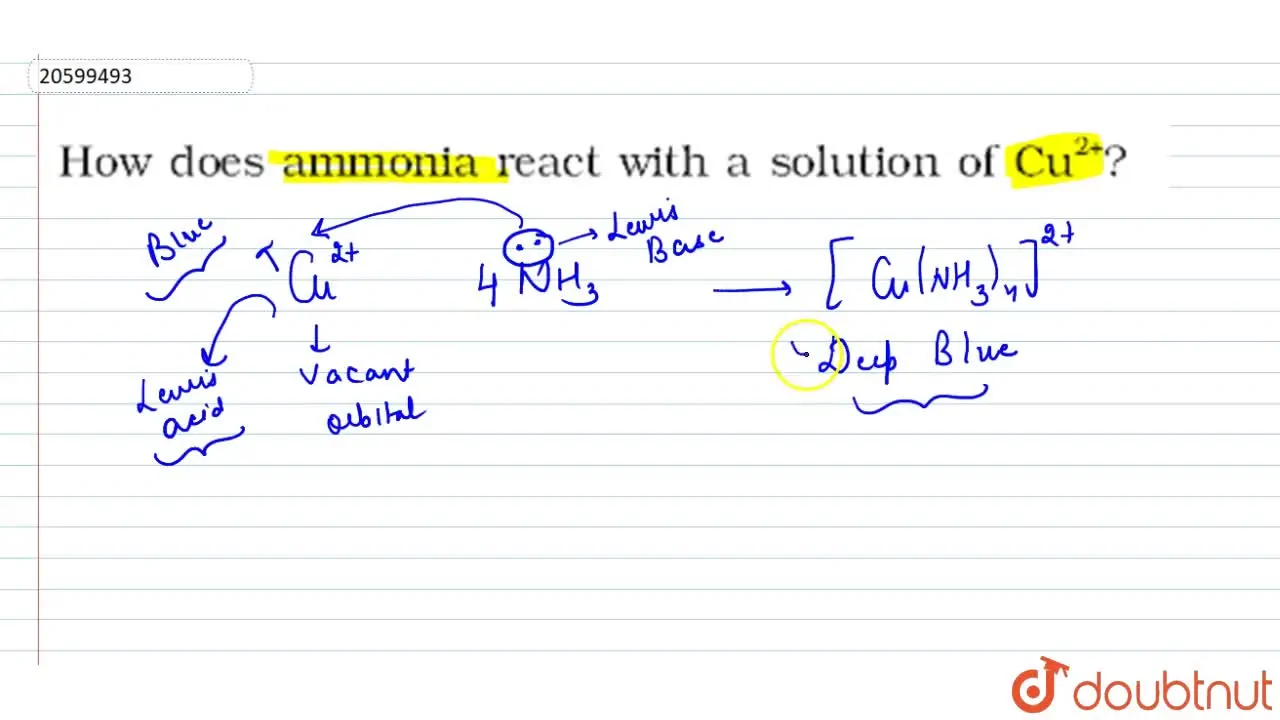 20599493
How does ammonia react with a solution of Cu²⁺?
Blue
Cu²⁺
4 NH₃
Lewis
Base
[Cu(NH₃)₄]²⁺
Lewis
acid
Vacant
orbital
Deep Blue
doubtnut